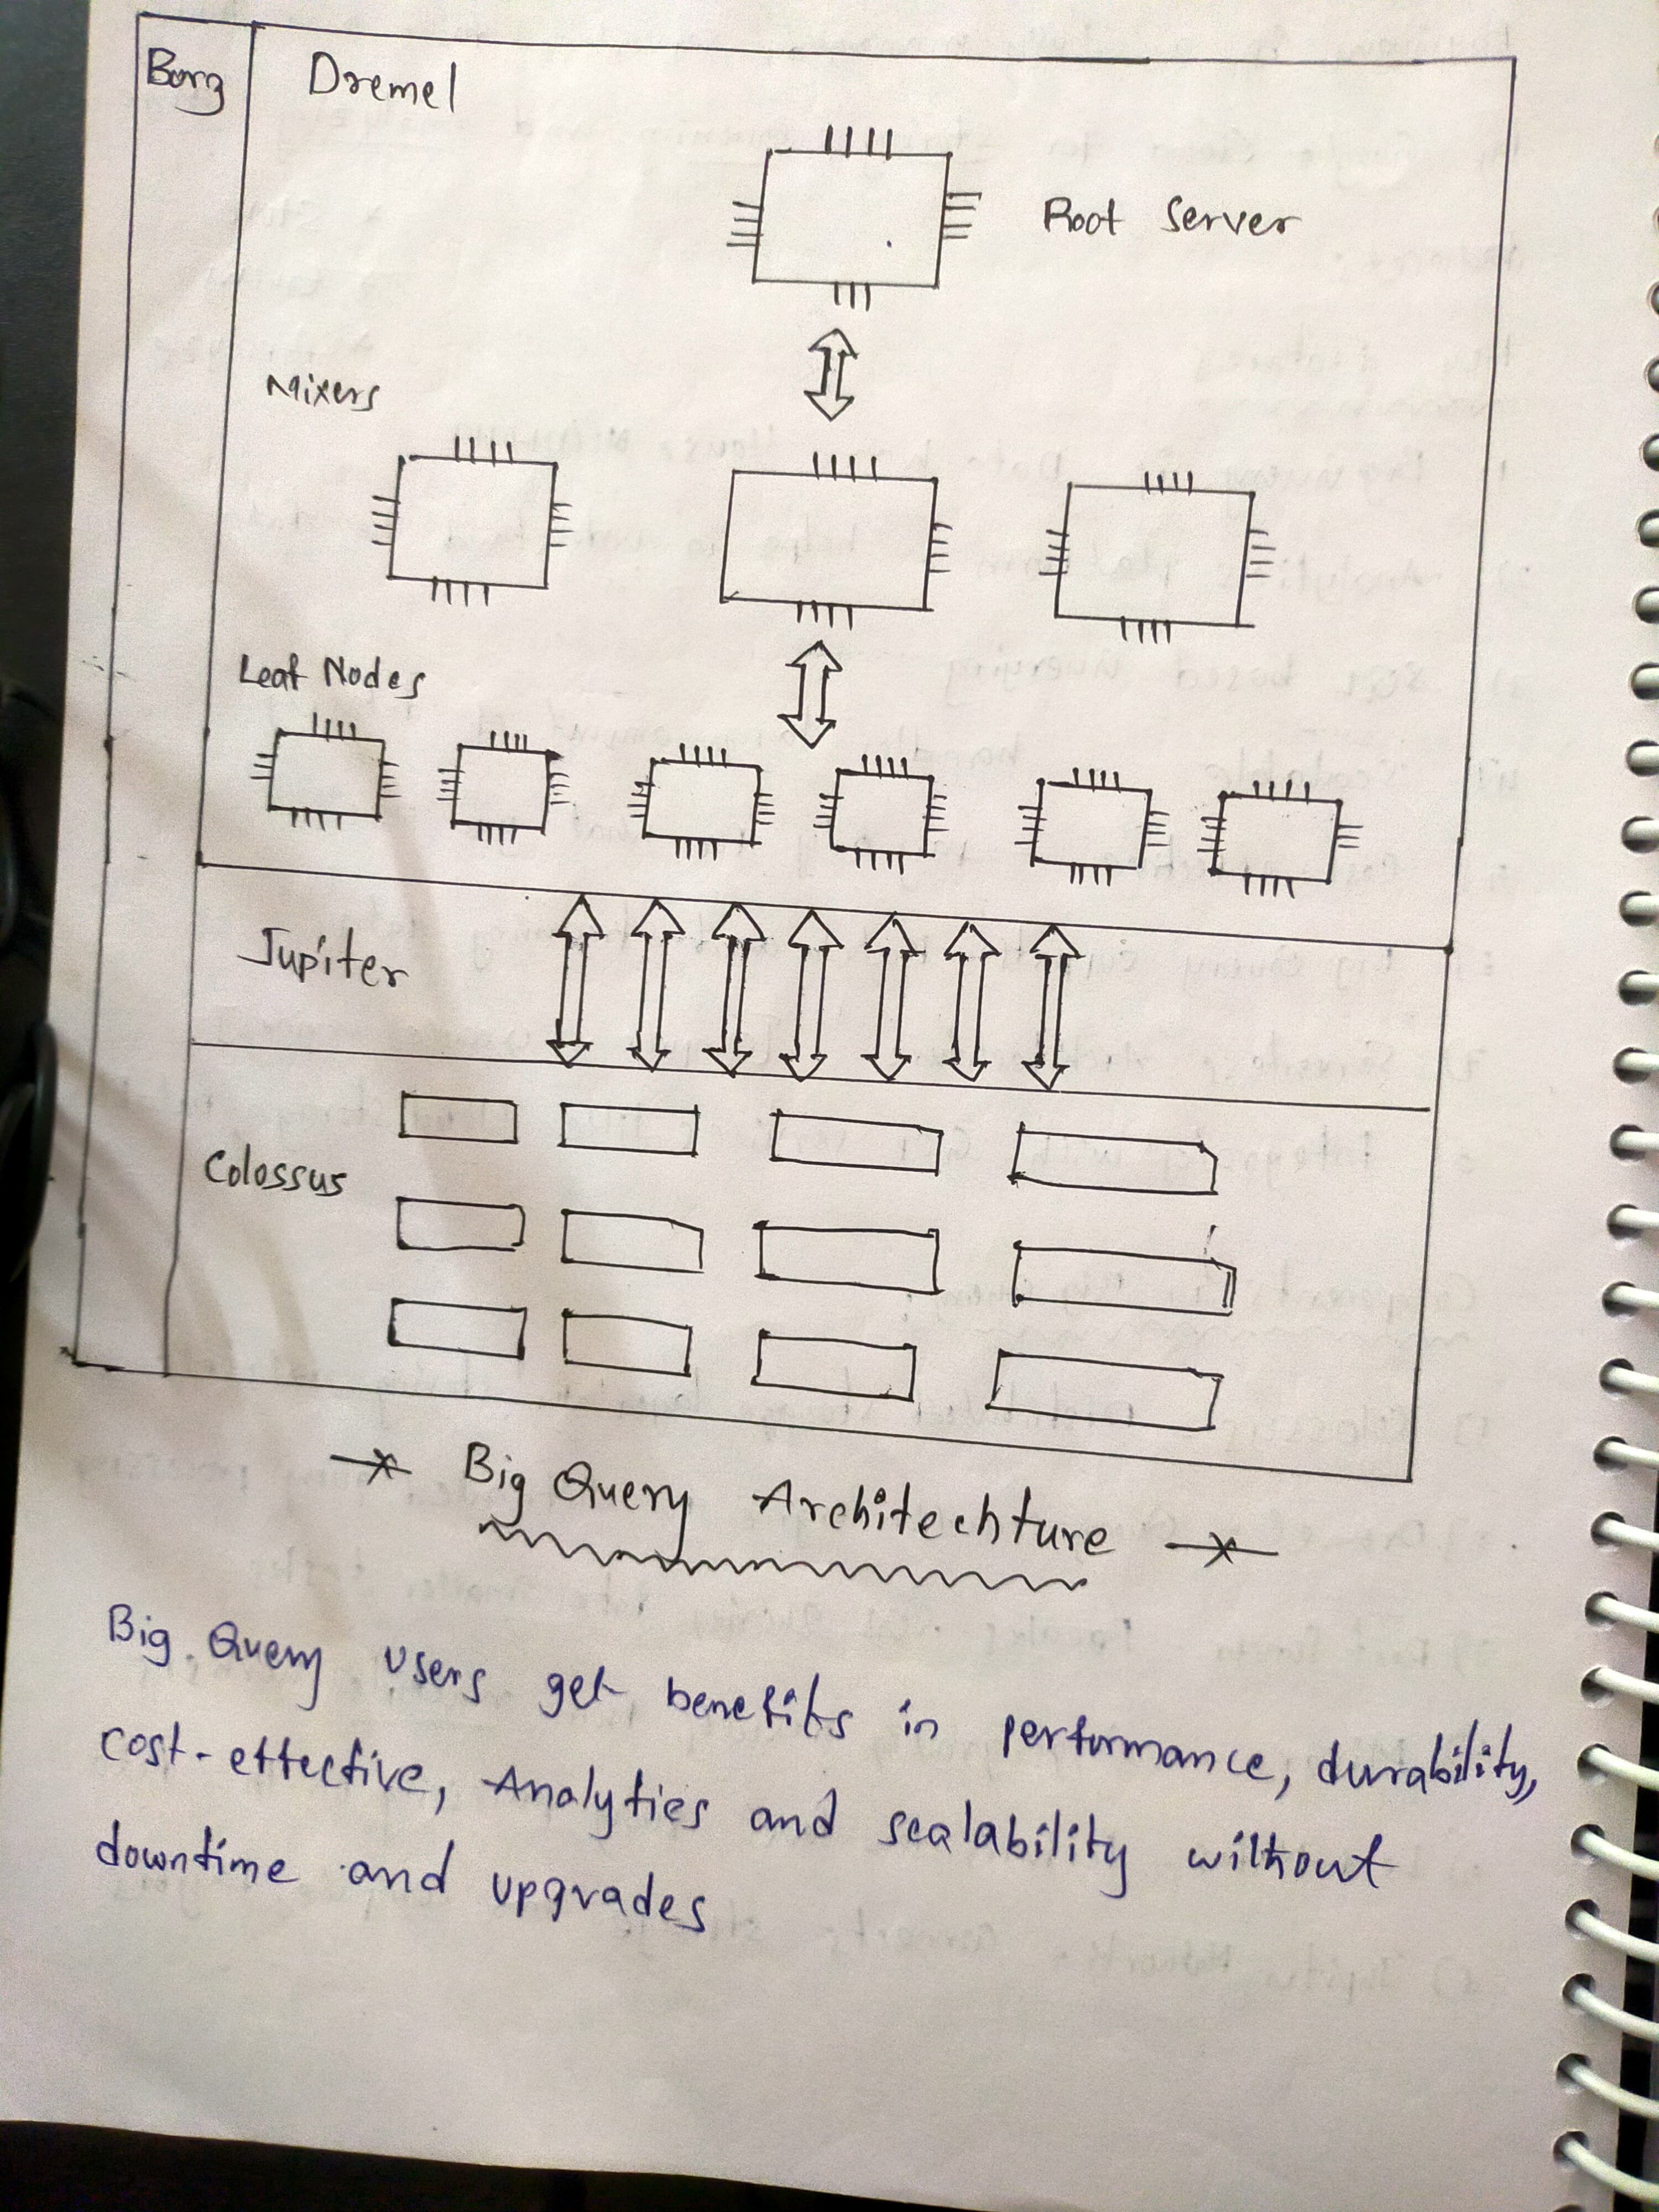 Borg
Dremel
Root Server
Mixers
Leaf Nodes
Jupiter
Colossus
Big Query Architechture
Big Query users get benefits in performance, durability,
cost-effective, Analytics and scalability without
downtime and upgrades